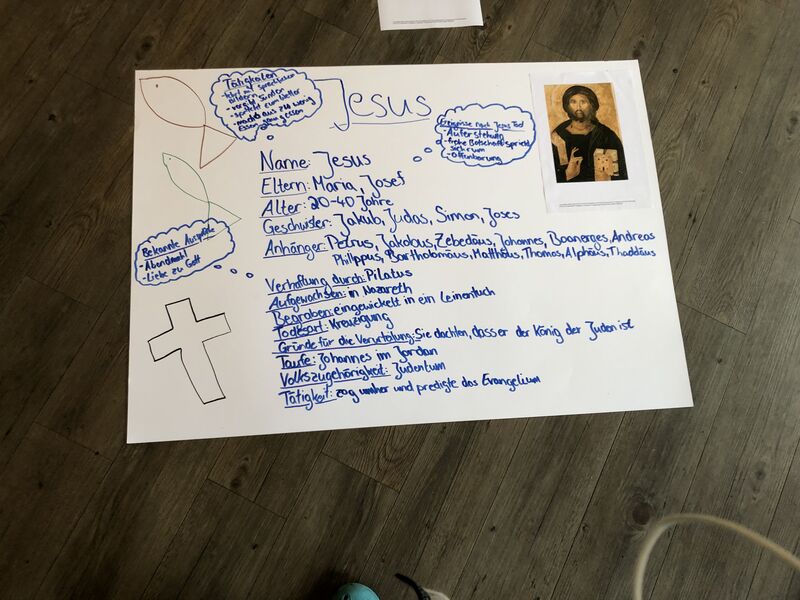 Jesus
Tätigkeiten
Bildern
- vergibt Sünder
- spricht zum Wetter
- macht aus zu wenig
Essen
Ereignisse nach Jesus Tod
- Auferstehung
- frohe Botschaft spricht
sich rum
- Offenbarung
Name: Jesus
Eltern: Maria, Josef
Alter: 20-40 Jahre
Geschwister: Jakub, Judas, Simon, Joses
Anhänger: Petrus, Jakobus, Zebedäus, Johannes, Boanerges, Andreas
Philippus, Bartholomäus, Matthäus, Thomas, Alphäus, Thaddäus
Bekannte Aussprüche
- Abendmahl
- Liebe zu Gott
Verhaftung durch: Pilatus
Aufgewachsen: in Nazareth
Begraben: eingewickelt in ein Leinentuch
Todesart: Kreuzigung
Gründe für die Verurteilung: Sie dachten, dass er der König der Juden ist
Taufe: Johannes im Jordan
Volkszugehörigkeit: Judentum
Tätigkeit: zog umher und predigte das Evangelium